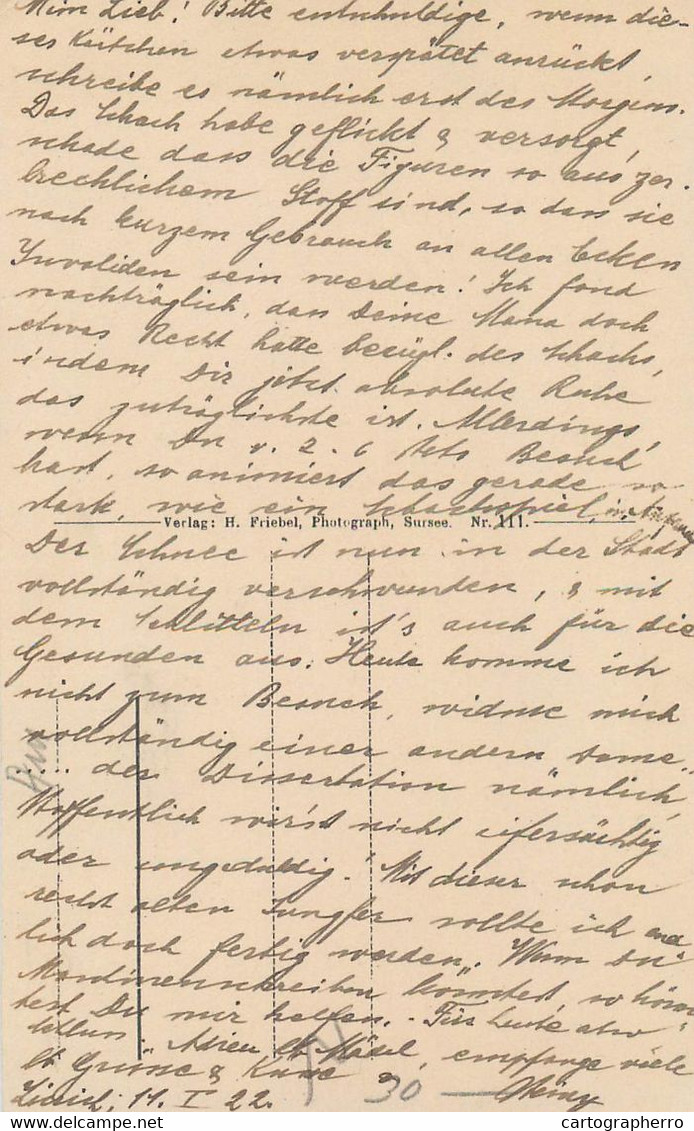 Mein Lieb! Bitte entschuldige, wenn die-
ses Kärtchen etwas verspätet anrückt,
schreibe es nämlich erst des Morgens.
Das Schach habe geflickt & versorgt,
schade dass die Figuren so aus zer-
brechlichem Stoff sind, so dass sie
nach kurzem Gebrauch an allen Ecken
Invaliden sein werden! Ich fand
nachträglich, dass Deine Mama doch
etwas Recht hatte bezügl. des Schachs,
indem Dir jetzt absolute Ruhe
das zuträglichste ist. Allerdings,
wenn Du v. 2-6 stets Besuch
hast, so animiert das gerade so
stark, wie ein Schachspiel,
Verlag: H. Friebel, Photograph, Sursee. Nr. 111.
Der Schnee ist nun in der Stadt
vollständig verschwunden, & mit
dem Schlitteln ist's auch für die
Gesunden aus. Heute komme ich
nicht zum Besuch, widme mich
vollständig einer andern Dame,
.... der Dissertation nämlich,
Hoffentlich wirst nicht eifersüchtig
oder ungeduldig. Mit dieser schon
recht alten Jungfer sollte ich end
lich doch fertig werden. Wenn Du
Maschinenschreiben könntest, so könn
test Du mir helfen. - Für heute also
Adieu lb. Mädel, empfange viele
lb Grüsse & Küsse
Zürich, 11. I 22.
30